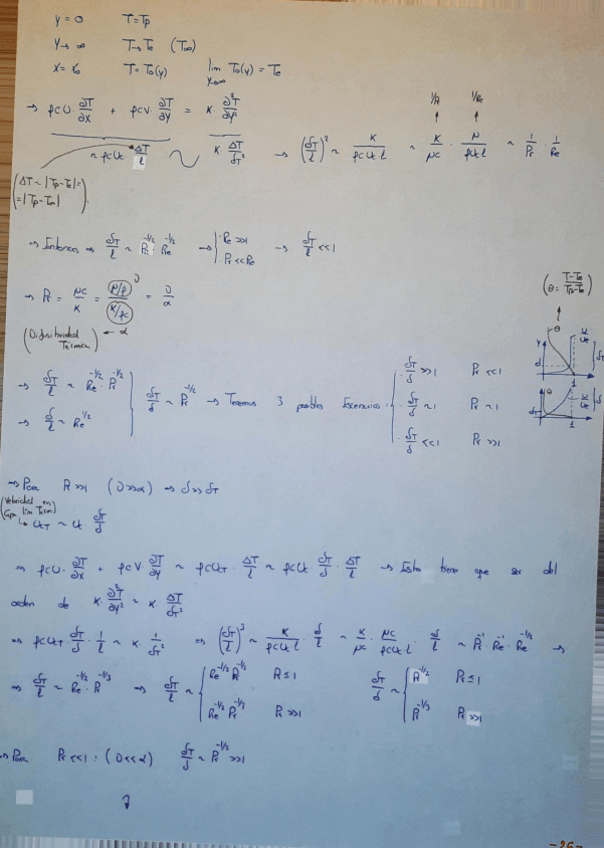 y = 0 T = Tp
y → ∞ T → Te (T∞)
x = x₀ T = T₀(y) lim y→∞ T₀(y) = Te
→ ρcU · ∂T/∂x + ρcV · ∂T/∂y = K ∂²T/∂y² 1/Pr 1/Re
~ ρcUe ΔT/l ~ K · ΔT/δT² → (δT/l)² ~ K/(ρcUe l) ~ K/(μc) · μ/(ρUe l) ~ 1/Pr · 1/Re
(ΔT ~ |Tp-Te| =
= |Tp-T∞|)
→ Entonces → δT/l ~ Pr^(-1/2) Re^(-1/2) → { Re >> 1 → δT/l << 1
Pr << Re
→ Pr = μc/K = (μ/ρ)/(K/ρc) = υ/α (θ = (T-Te)/(Tp-Te))
(Difusividad Térmica) ← α
→ δT/l ~ Re^(-1/2) · Pr^(-1/2) } δT/δ ~ Pr^(-1/2) → Tenemos 3 posibles Escenarios { δT/δ >> 1 Pr << 1
→ δ/l ~ Re^(1/2) δT/δ ~ 1 Pr ~ 1
δT/δ << 1 Pr >> 1
→ Para Pr >> 1 (υ >> α) → δ >> δT
(Velocidad en Capa lim Term) ↳ UT ~ Ue δT/δ
→ ρcU · ∂T/∂x + ρcV · ∂T/∂y ~ ρcUT · ΔT/l ~ ρcUe δT/δ · ΔT/l → Esto tiene que ser del
orden de K · ∂²T/∂y² ~ K · ΔT/δT²
→ ρcUT δT/δ · 1/l ~ K · 1/δT² → (δT/l)³ ~ K/(ρcUe l) · δ/l ~ K/(μc) · μc/(ρcUe l) · δ/l ~ Pr^(-1) · Re^(-1) · Re^(-1/2) →
→ δT/l ~ Re^(-1/2) · Pr^(-1/3) → δT/l ~ { Re^(-1/2) Pr^(-1/2) Pr ≤ 1 δT/δ ~ { Pr^(-1/2) Pr ≤ 1
Re^(-1/2) Pr^(-1/3) Pr >> 1 Pr^(-1/3) Pr >> 1
→ Para Pr << 1 : (υ << α) δT/δ ~ Pr^(-1/2) >> 1
-26-